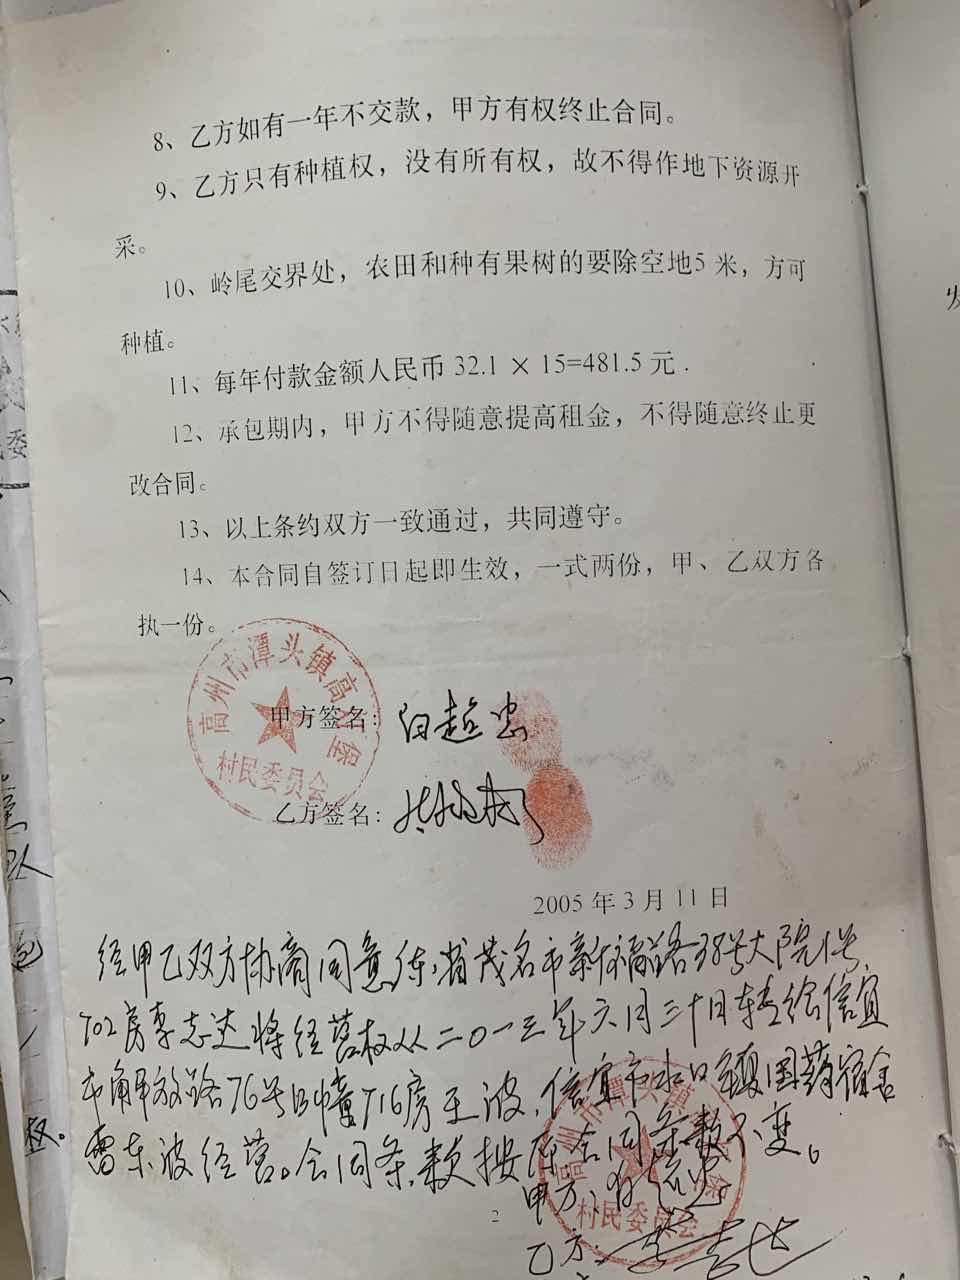 8、乙方如有一年不交款，甲方有权终止合同。
9、乙方只有种植权，没有所有权，故不得作地下资源开
采。
10、岭尾交界处，农田和种有果树的要除空地5米，方可
种植。
11、每年付款金额人民币 32.1 × 15=481.5 元.
12、承包期内，甲方不得随意提高租金，不得随意终止更
改合同。
13、以上条约双方一致通过，共同遵守。
14、本合同自签订日起即生效，一式两份，甲、乙双方各
执一份。
高州市潭头镇高
村民委员会
甲方签名：
乙方签名：
2005 年 3 月 11 日
经甲乙双方协商同意 省茂名市新福路38号大院1号
702房李志达将经营权从二〇一三年六月三十日转给信宜
市 解放路76号 716房王波、信宜市水口镇国药宿舍
雷东波经营。合同条款按原合同条款不变。
甲方：
村民委员会
2
乙方：
权。